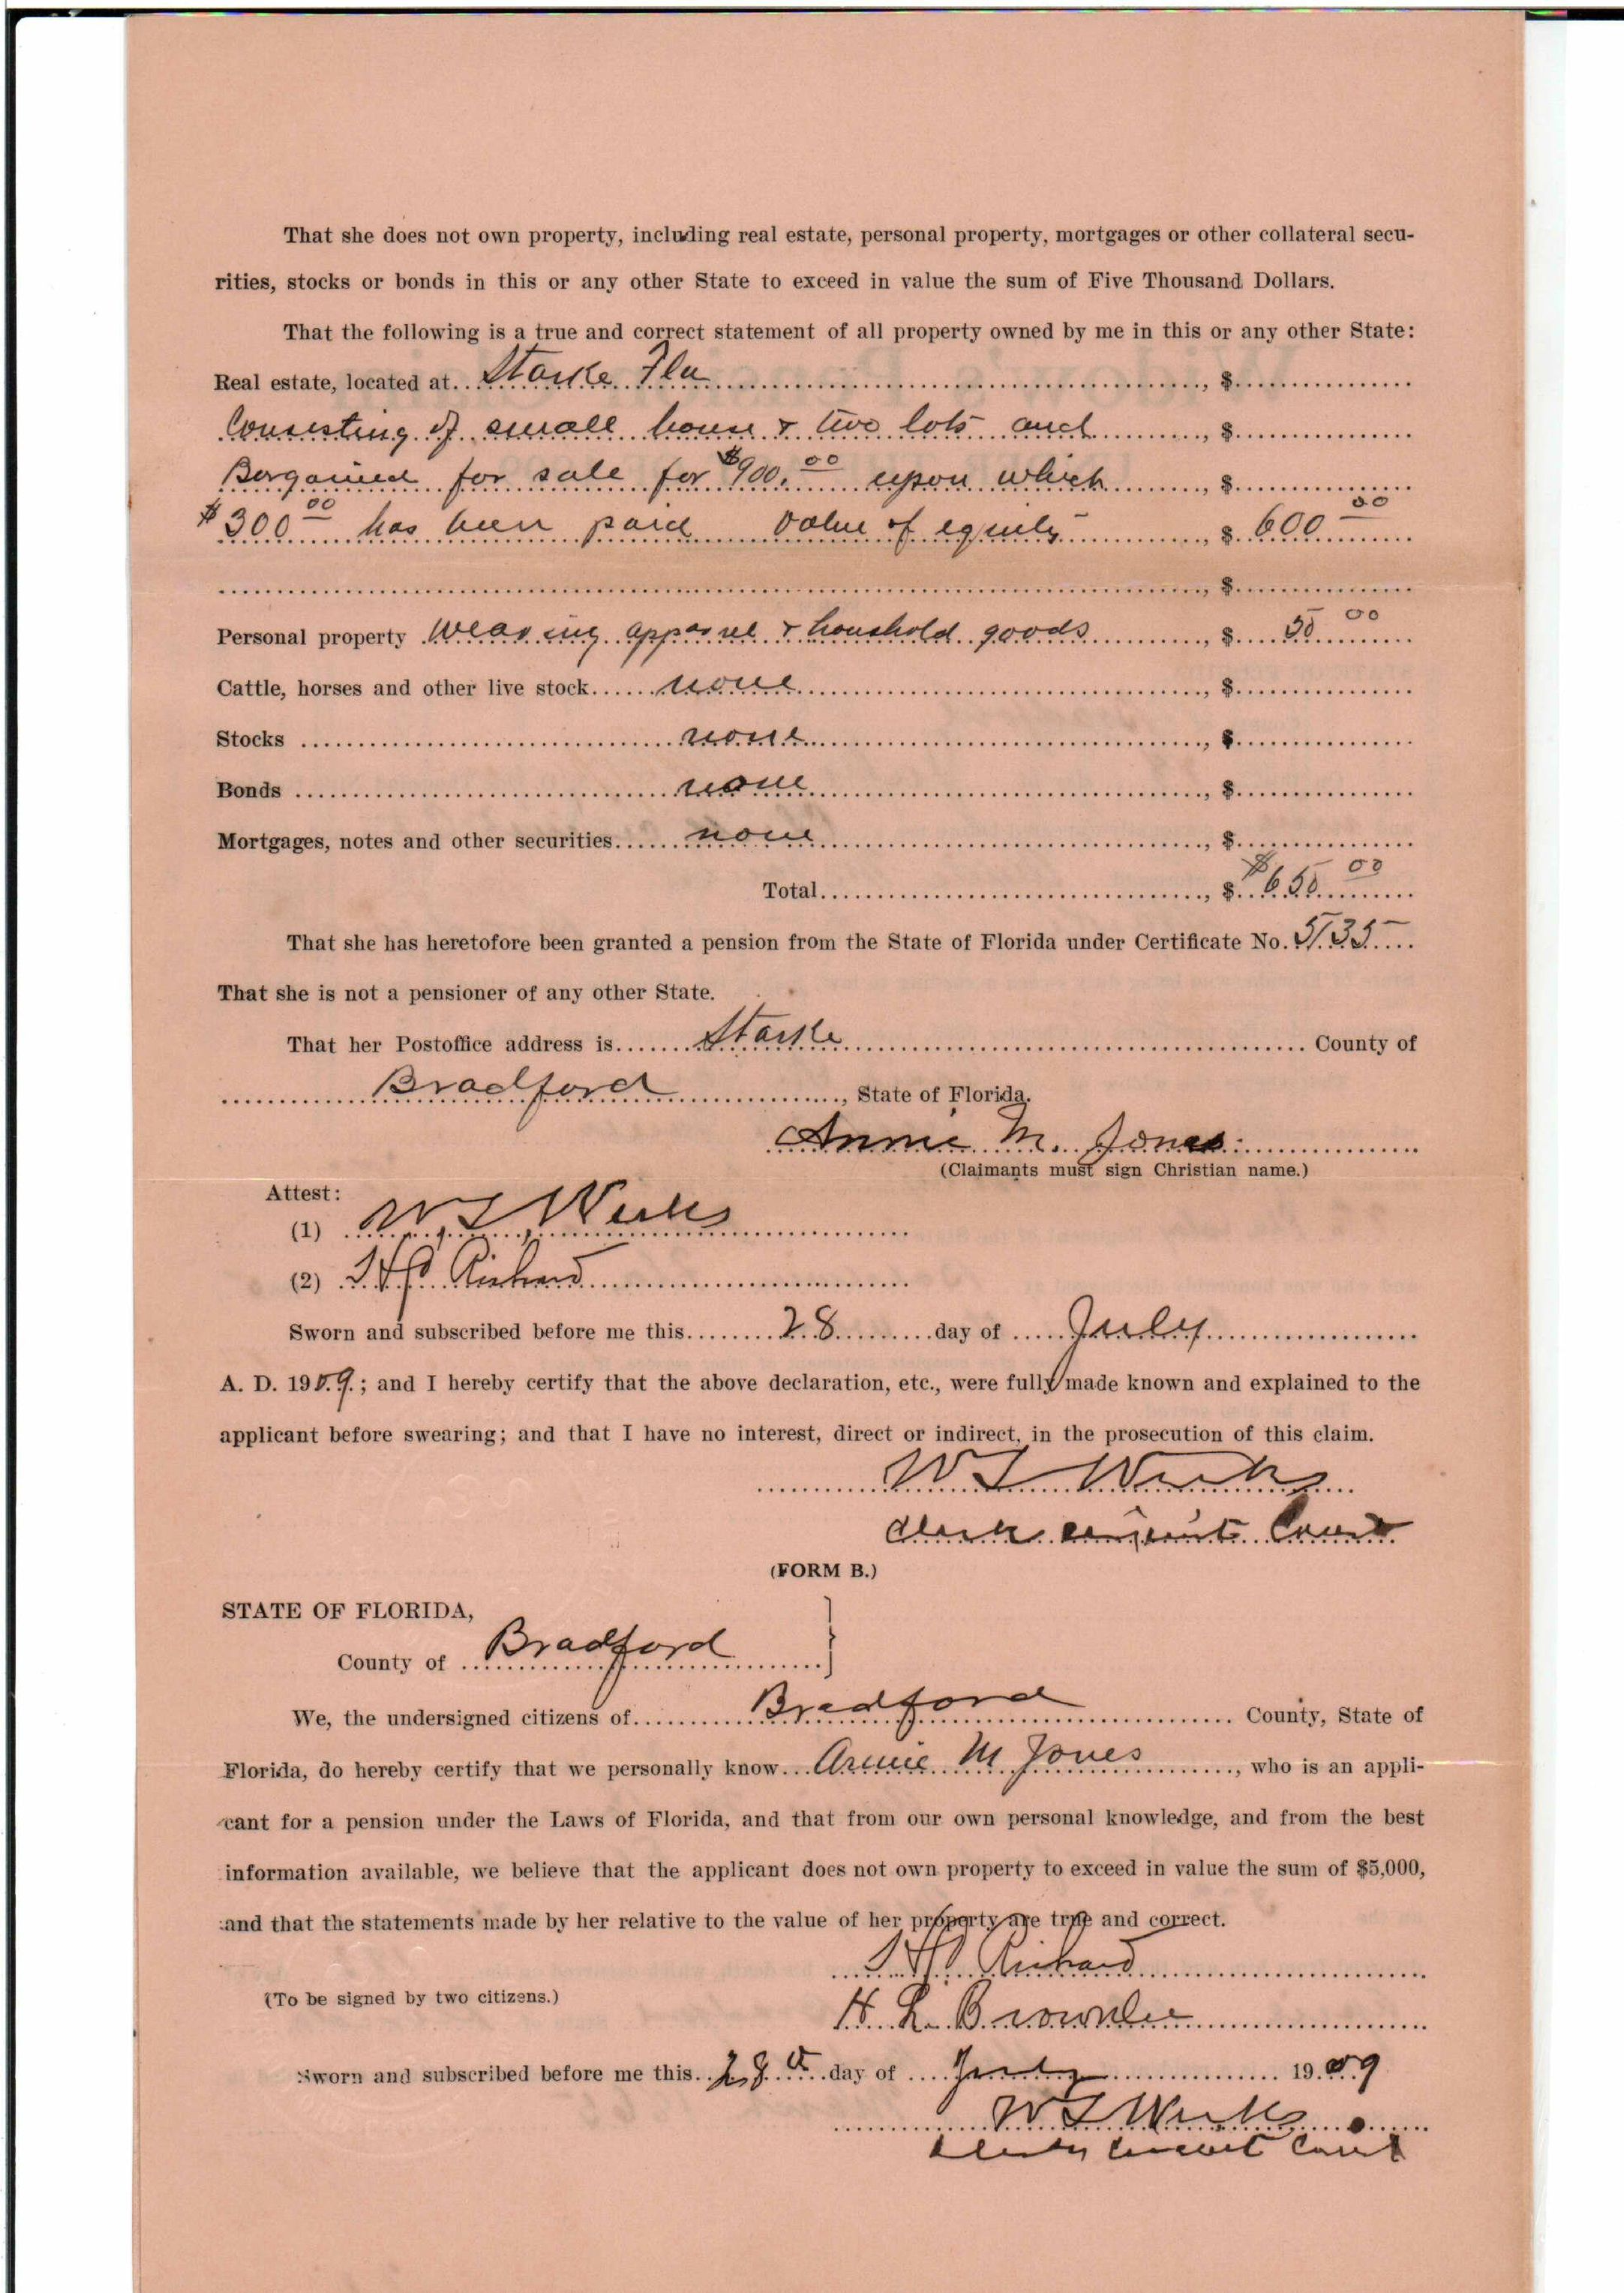 That she does not own property, including real estate, personal property, mortgages or other collateral secu-
rities, stocks or bonds in this or any other State to exceed in value the sum of Five Thousand Dollars.
That the following is a true and correct statement of all property owned by me in this or any other State:
Real estate, located at Starke Fla, $
Consisting of small house & two lots and, $
Bargained for sale for $900.00 upon which, $
$300 00 has been paid value of equity, $ 600 00
, $
Personal property Wearing apparel & houshold goods, $ 50 00
Cattle, horses and other live stock none, $
Stocks none, $
Bonds none, $
Mortgages, notes and other securities none, $
Total, $ $650 00
That she has heretofore been granted a pension from the State of Florida under Certificate No. 5135
That she is not a pensioner of any other State.
That her Postoffice address is Starke County of
Bradford, State of Florida.
Annie M. Jones
(Claimants must sign Christian name.)
Attest:
(1) W L Weeks
(2) Richard
Sworn and subscribed before me this 28 day of July
A. D. 1909; and I hereby certify that the above declaration, etc., were fully made known and explained to the
applicant before swearing; and that I have no interest, direct or indirect, in the prosecution of this claim.
W L Weeks
Clerk circuit Court
(FORM B.)
STATE OF FLORIDA,
County of Bradford
We, the undersigned citizens of Bradford County, State of
Florida, do hereby certify that we personally know Annie M Jones, who is an appli-
cant for a pension under the Laws of Florida, and that from our own personal knowledge, and from the best
information available, we believe that the applicant does not own property to exceed in value the sum of $5,000,
and that the statements made by her relative to the value of her property are true and correct.
Richard
(To be signed by two citizens.)
H. L. Brownlee
Sworn and subscribed before me this 28th day of July 1909
W L Weeks
Clerk Circuit Court